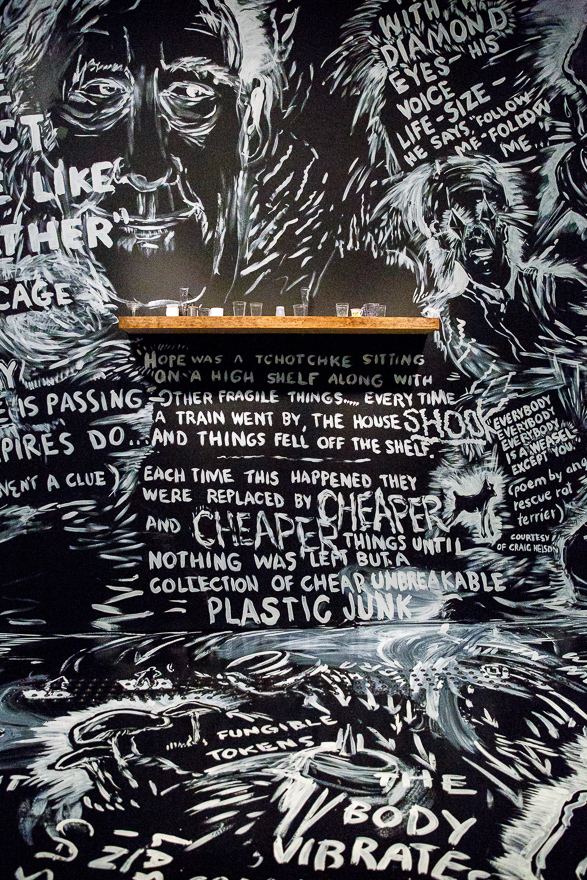 WITH
DIAMOND
EYES - HIS
VOICE
LIFE-SIZE -
HE SAYS, "FOLLOW
ME - FOLLOW
ME...
CT
LIKE
THER"
CAGE
IS PASSING
PIRES DO...
A CLUE)
HOPE WAS A TCHOTCHKE SITTING
ON A HIGH SHELF ALONG WITH
OTHER FRAGILE THINGS.... EVERY TIME
A TRAIN WENT BY, THE HOUSE SHOOK
AND THINGS FELL OFF THE SHELF.
EACH TIME THIS HAPPENED THEY
WERE REPLACED BY CHEAPER
AND CHEAPER THINGS UNTIL
NOTHING WAS LEFT BUT A
COLLECTION OF CHEAP UNBREAKABLE
PLASTIC JUNK
EVERYBODY
EVERYBODY
EVERYBODY
IS A WEASEL
EXCEPT YOU
(poem by our
rescue rat
terrier)
COURTESY
OF CRAIG NELSON
FUNGIBLE
TOKENS
THE
BODY
VIBRATES